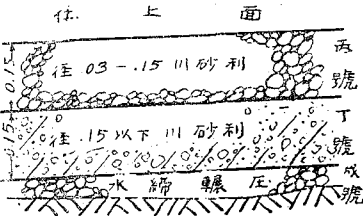 仕上面
0.15
径.03-.15川砂利
丙號
0.15
径.15以下川砂利
丁號
水締輾圧
戊號